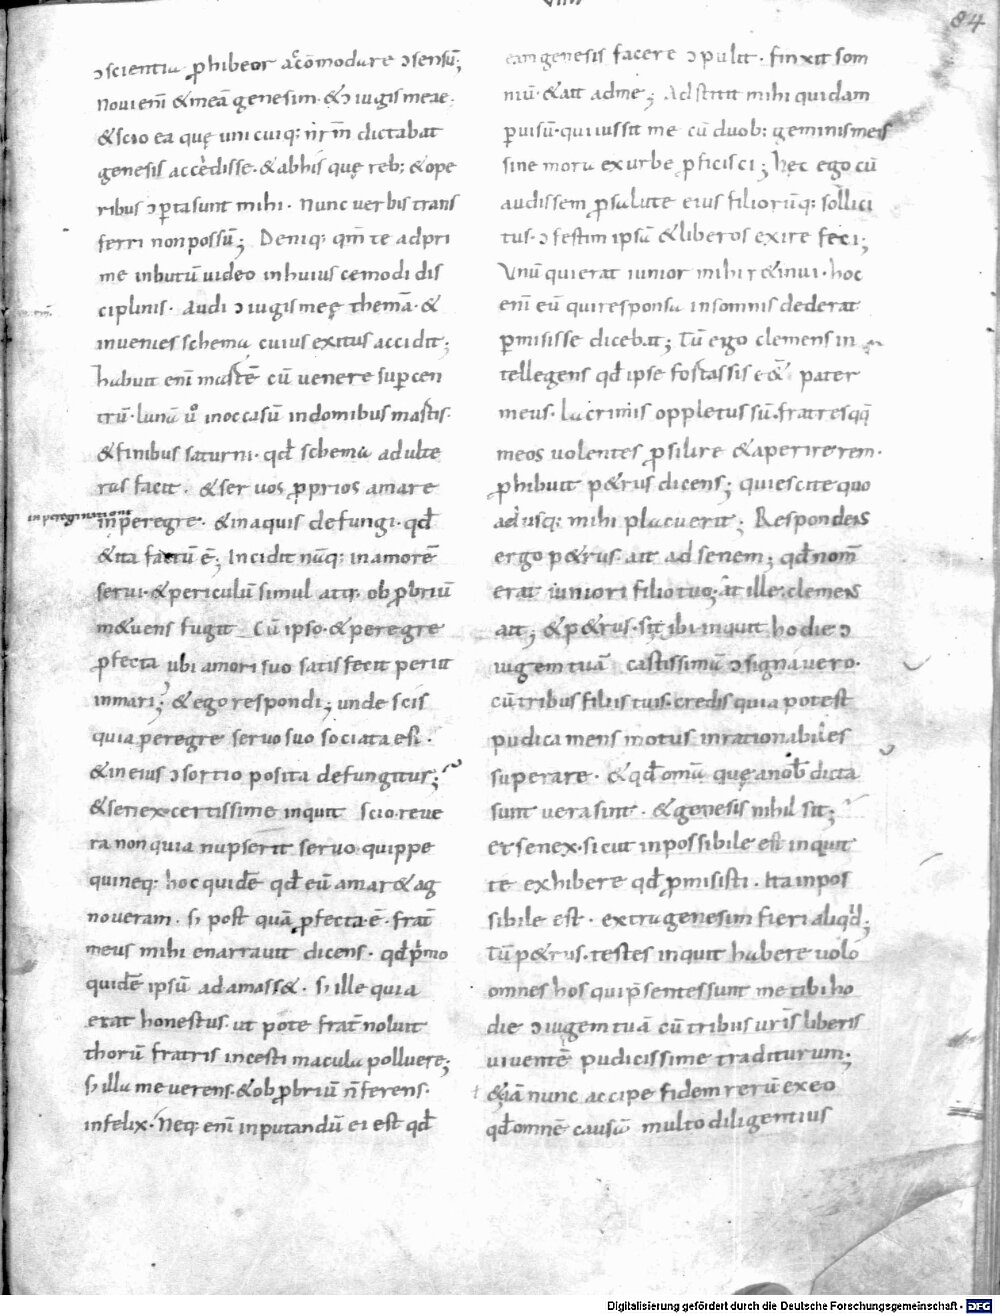 VIIII
84
ɔscientia ꝓhibeor accōmodare ɔsensū;
Noui enī & meā genesim · & ɔiugis meae ·
& scio ea quę uni cuiq: nr̄m̄ dictabat
genesis accedisse · & ab his quę reb; & ope
ribus ɔperta sunt mihi · Nunc uerbis trans
ferri non possū; Deniq: qm̄ te ad pri
me inbutū uideo in huiuscemodi dis
ciplinis · Audi ɔiugis meę thema · &
inuenies schema cuius exitus accidit;
habuit enī martē cū uenere sup cen
trū · lunā ū in occasū in domibus martis
& finibus saturni · qd̄ schema adulte
ras facit · & seruos ꝓprios amare
in peregrinatione
in peregre · & in aquis defungi · qd̄
& ita factū ē; Incidit nāq: in amorē
serui · & periculū simul atq: obꝓbriū
m&uens fugit Cū ipso · & peregre
ꝓfecta ubi amori suo satisfecit periit
in mari; & ego respondi; unde scis
quia peregre seruo suo sociata est ·
& in eius ɔsortio posita defungitur;
& senex · certissime inquit scio · reue
ra non quia nupserit seruo · quippe
quineq: hoc quidē qd̄ eū amar& ag
noueram · si post quā ꝓfecta ē · frat̄
meus mihi enarrauit dicens · qd̄ p̄mo
quidē ipsū adamass& · si ille quia
erat honestus · ut pote frat̄ noluit
thorū fratris incesti macula polluere;
si illa me uerens · & obꝓbriū n̄ ferens ·
infelix · Neq: enī inputandū ei est qd̄
eam genesis facere ɔpulit · finxit som
niū · & ait ad me; Adstitit mihi quidam
p uisū · qui iussit me cū duob; geminis meis
sine mora ex urbe ꝓficisci; hęc ego cū
audissem ꝓ salute eius filiorūq: sollici
tus · ɔfestim ipsū & liberos exire feci;
Vnū qui erat iunior mihi r&inui · hoc
enī eū qui responsa in somnis dederat
pmisisse dicebat; Tū ergo clemens in
tellegens qd̄ ipse fortassis ess& pater
meus · Lacrimis oppletus sū · fratresqq̄
meos uolentes ꝓsilire & aperire rem ·
ꝓhibuit p&rus dicens; quiescite quo
adusq: mihi placuerit; Respondens
ergo p&rus · ait ad senem; qd̄ nom̄
erat iuniori filio tuo; at ille · clemens
ait; & p&rus · si tibi inquit hodie ɔ
iugem tuā castissimā ɔsignauero ·
cū tribus filiis tuis · credis quia potest
pudica mens motus inrationabiles
superare · & qd̄ omīa quę a nob̄ dicta
sunt uera sint · & genesis nihil sit;
et senex · sicut inpossibile est inquit
te exhibere qd̄ pmisisti · Ita inpos
sibile est · extra genesim fieri aliqd̄;
Tū p&rus · testes inquit habere uolo
omnes hos qui p̄sentes sunt me tibi ho
die ɔiugem tuā cū tribus ur̄is liberis
uiuentē pudicissime traditurum;
& iā nunc accipe fidem rerū ex eo
qd̄ omnē causā multo diligentius
Digitalisierung gefördert durch die Deutsche Forschungsgemeinschaft - DFG